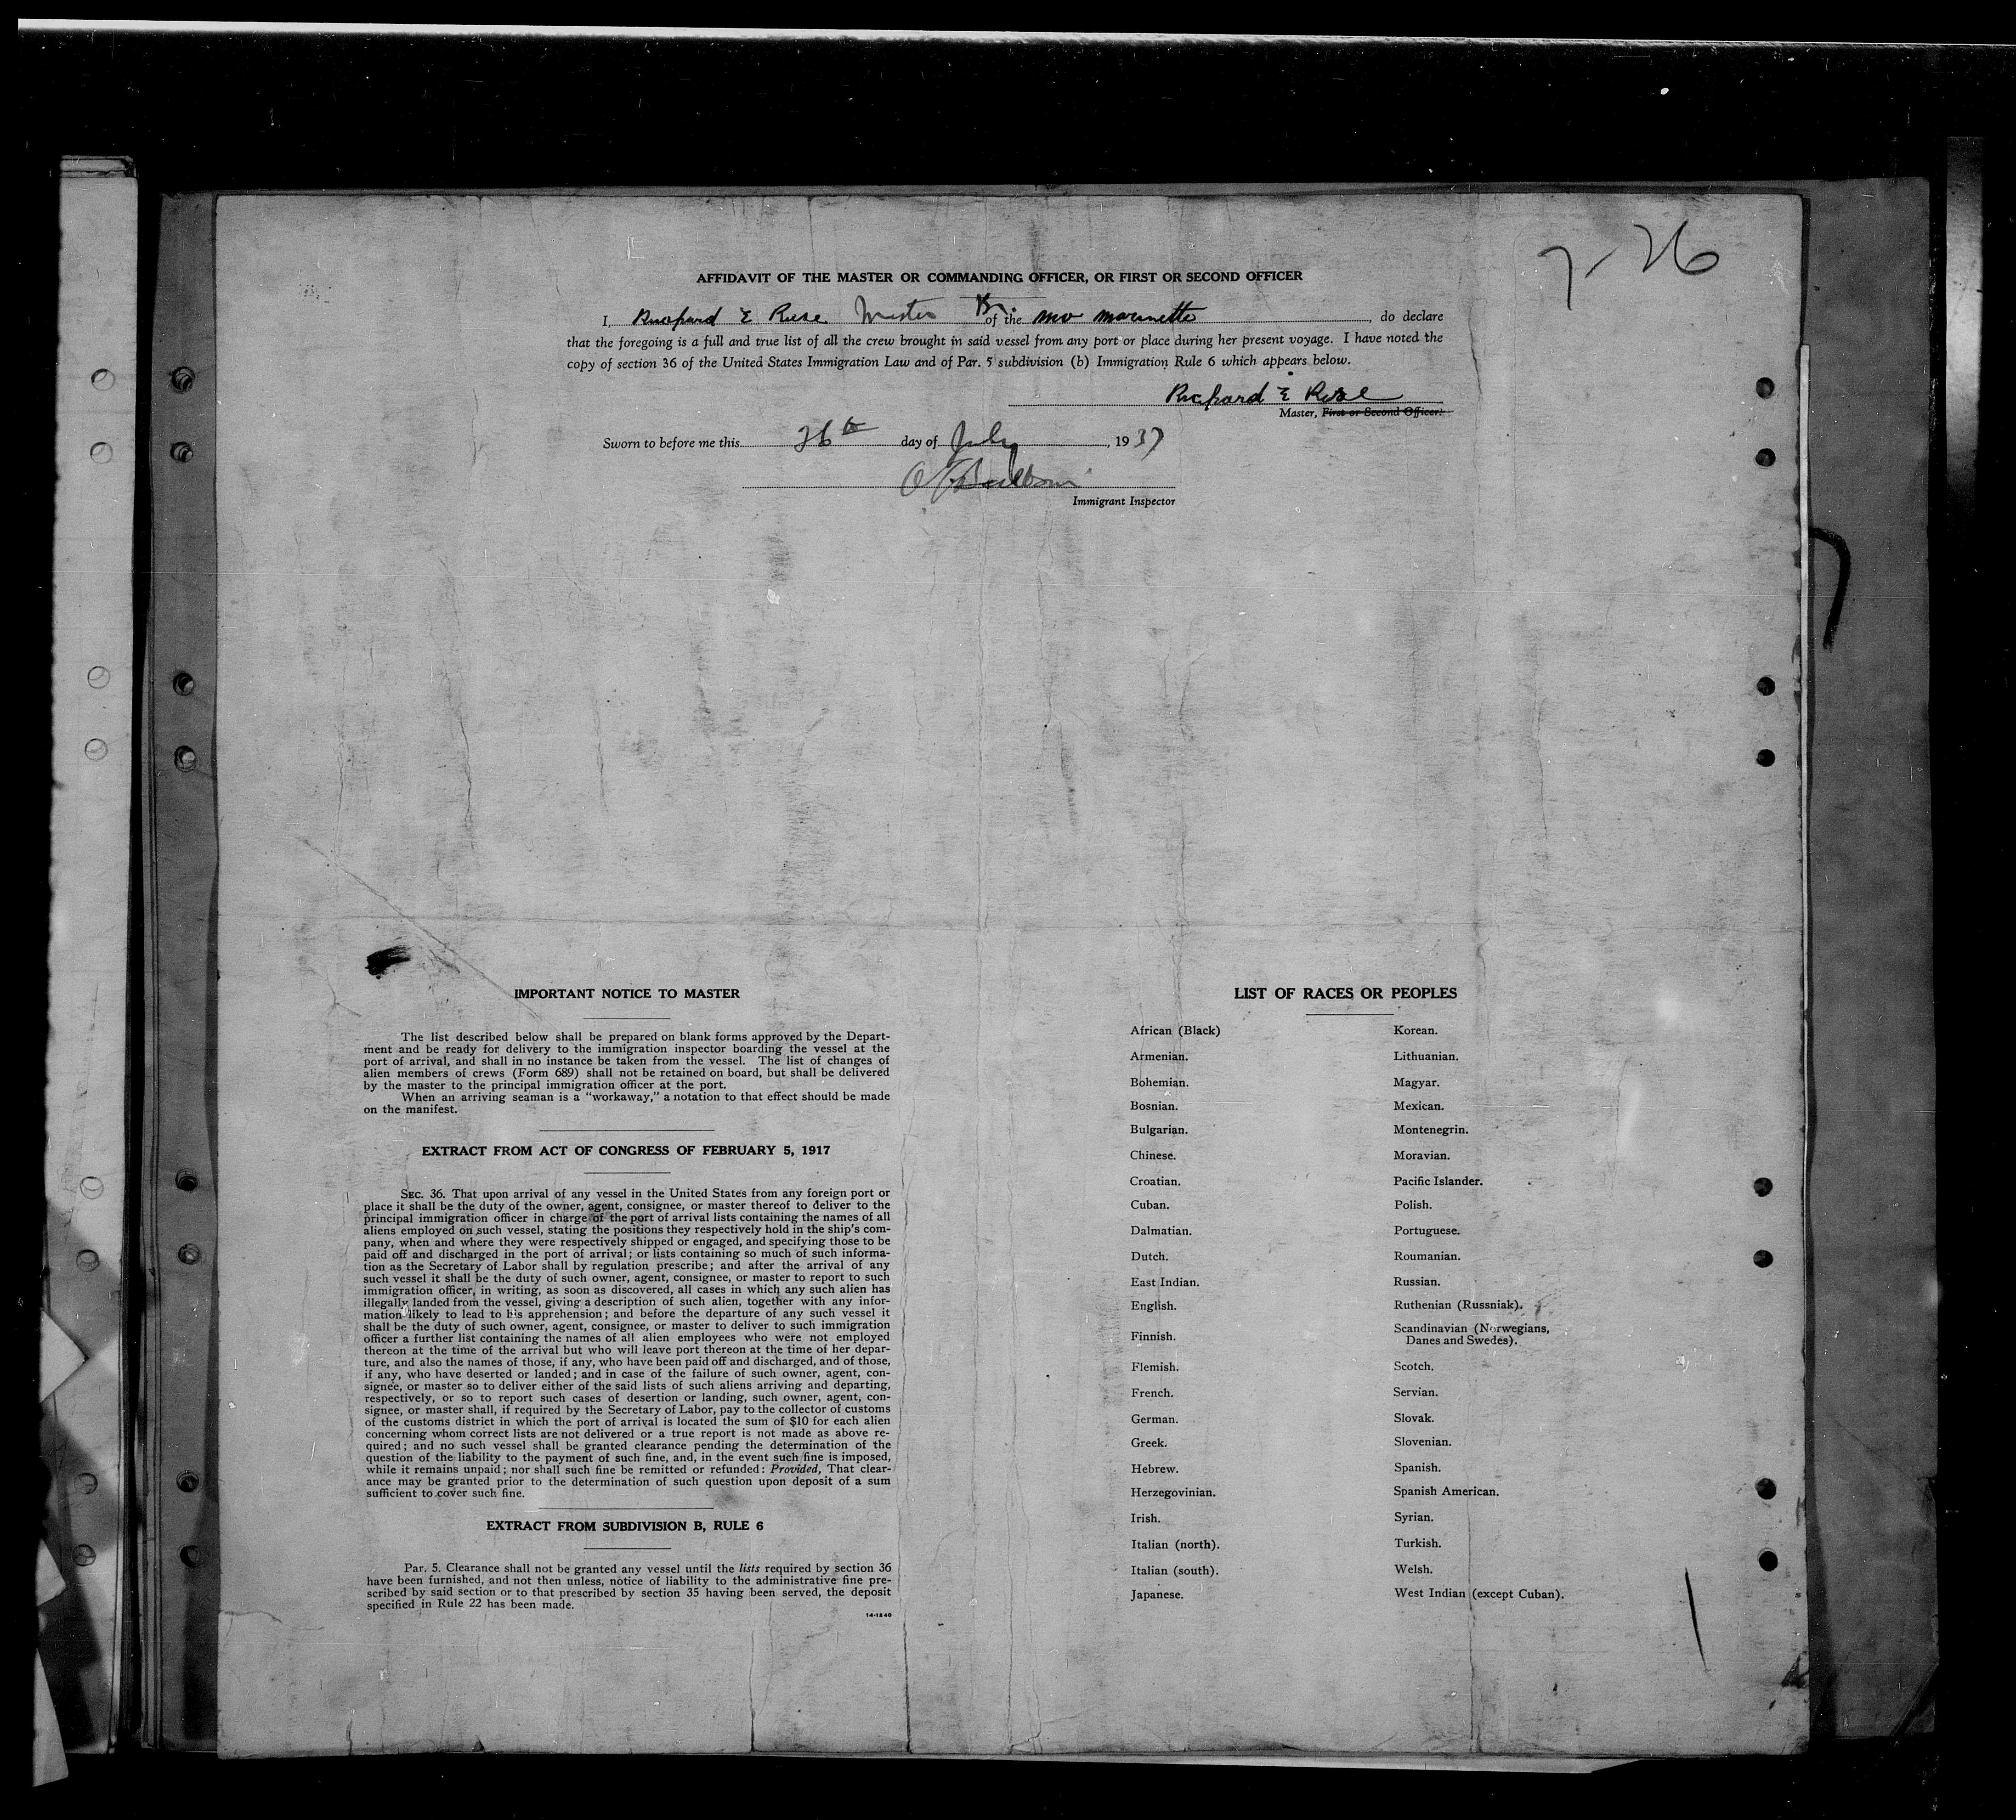 7-26
AFFIDAVIT OF THE MASTER OR COMMANDING OFFICER, OR FIRST OR SECOND OFFICER
I, Richard E Ruse Master Br. of the MV Marinette, do declare
that the foregoing is a full and true list of all the crew brought in said vessel from any port or place during her present voyage. I have noted the
copy of section 36 of the United States Immigration Law and of Par. 5 subdivision (b) Immigration Rule 6 which appears below.
Richard E
Master, First or Second Officer.
Sworn to before me this 26th day of July, 1937
Immigrant Inspector
IMPORTANT NOTICE TO MASTER
The list described below shall be prepared on blank forms approved by the Depart-
ment and be ready for delivery to the immigration inspector boarding the vessel at the
port of arrival, and shall in no instance be taken from the vessel. The list of changes of
alien members of crews (Form 689) shall not be retained on board, but shall be delivered
by the master to the principal immigration officer at the port.
When an arriving seaman is a "workaway," a notation to that effect should be made
on the manifest.
EXTRACT FROM ACT OF CONGRESS OF FEBRUARY 5, 1917
SEC. 36. That upon arrival of any vessel in the United States from any foreign port or
place it shall be the duty of the owner, agent, consignee, or master thereof to deliver to the
principal immigration officer in charge of the port of arrival lists containing the names of all
aliens employed on such vessel, stating the positions they respectively hold in the ship's com-
pany, when and where they were respectively shipped or engaged, and specifying those to be
paid off and discharged in the port of arrival; or lists containing so much of such informa-
tion as the Secretary of Labor shall by regulation prescribe; and after the arrival of any
such vessel it shall be the duty of such owner, agent, consignee, or master to report to such
immigration officer, in writing, as soon as discovered, all cases in which any such alien has
illegally landed from the vessel, giving a description of such alien, together with any infor-
mation likely to lead to his apprehension; and before the departure of any such vessel it
shall be the duty of such owner, agent, consignee, or master to deliver to such immigration
officer a further list containing the names of all alien employees who were not employed
thereon at the time of the arrival but who will leave port thereon at the time of her depar-
ture, and also the names of those, if any, who have been paid off and discharged, and of those,
if any, who have deserted or landed; and in case of the failure of such owner, agent, con-
signee, or master so to deliver either of the said lists of such aliens arriving and departing,
respectively, or so to report such cases of desertion or landing, such owner, agent, con-
signee, or master shall, if required by the Secretary of Labor, pay to the collector of customs
of the customs district in which the port of arrival is located the sum of $10 for each alien
concerning whom correct lists are not delivered or a true report is not made as above re-
quired; and no such vessel shall be granted clearance pending the determination of the
question of the liability to the payment of such fine, and, in the event such fine is imposed,
while it remains unpaid; nor shall such fine be remitted or refunded: Provided, That clear-
ance may be granted prior to the determination of such question upon deposit of a sum
sufficient to cover such fine.
EXTRACT FROM SUBDIVISION B, RULE 6
Par. 5. Clearance shall not be granted any vessel until the lists required by section 36
have been furnished, and not then unless, notice of liability to the administrative fine pre-
scribed by said section or to that prescribed by section 35 having been served, the deposit
specified in Rule 22 has been made.
14-1240
LIST OF RACES OR PEOPLES
African (Black)
Armenian.
Bohemian.
Bosnian.
Bulgarian.
Chinese.
Croatian.
Cuban.
Dalmatian.
Dutch.
East Indian.
English.
Finnish.
Flemish.
French.
German.
Greek.
Hebrew.
Herzegovinian.
Irish.
Italian (north).
Italian (south).
Japanese.
Korean.
Lithuanian.
Magyar.
Mexican.
Montenegrin.
Moravian.
Pacific Islander.
Polish.
Portuguese.
Roumanian.
Russian.
Ruthenian (Russniak).
Scandinavian (Norwegians,
Danes and Swedes).
Scotch.
Servian.
Slovak.
Slovenian.
Spanish.
Spanish American.
Syrian.
Turkish.
Welsh.
West Indian (except Cuban).